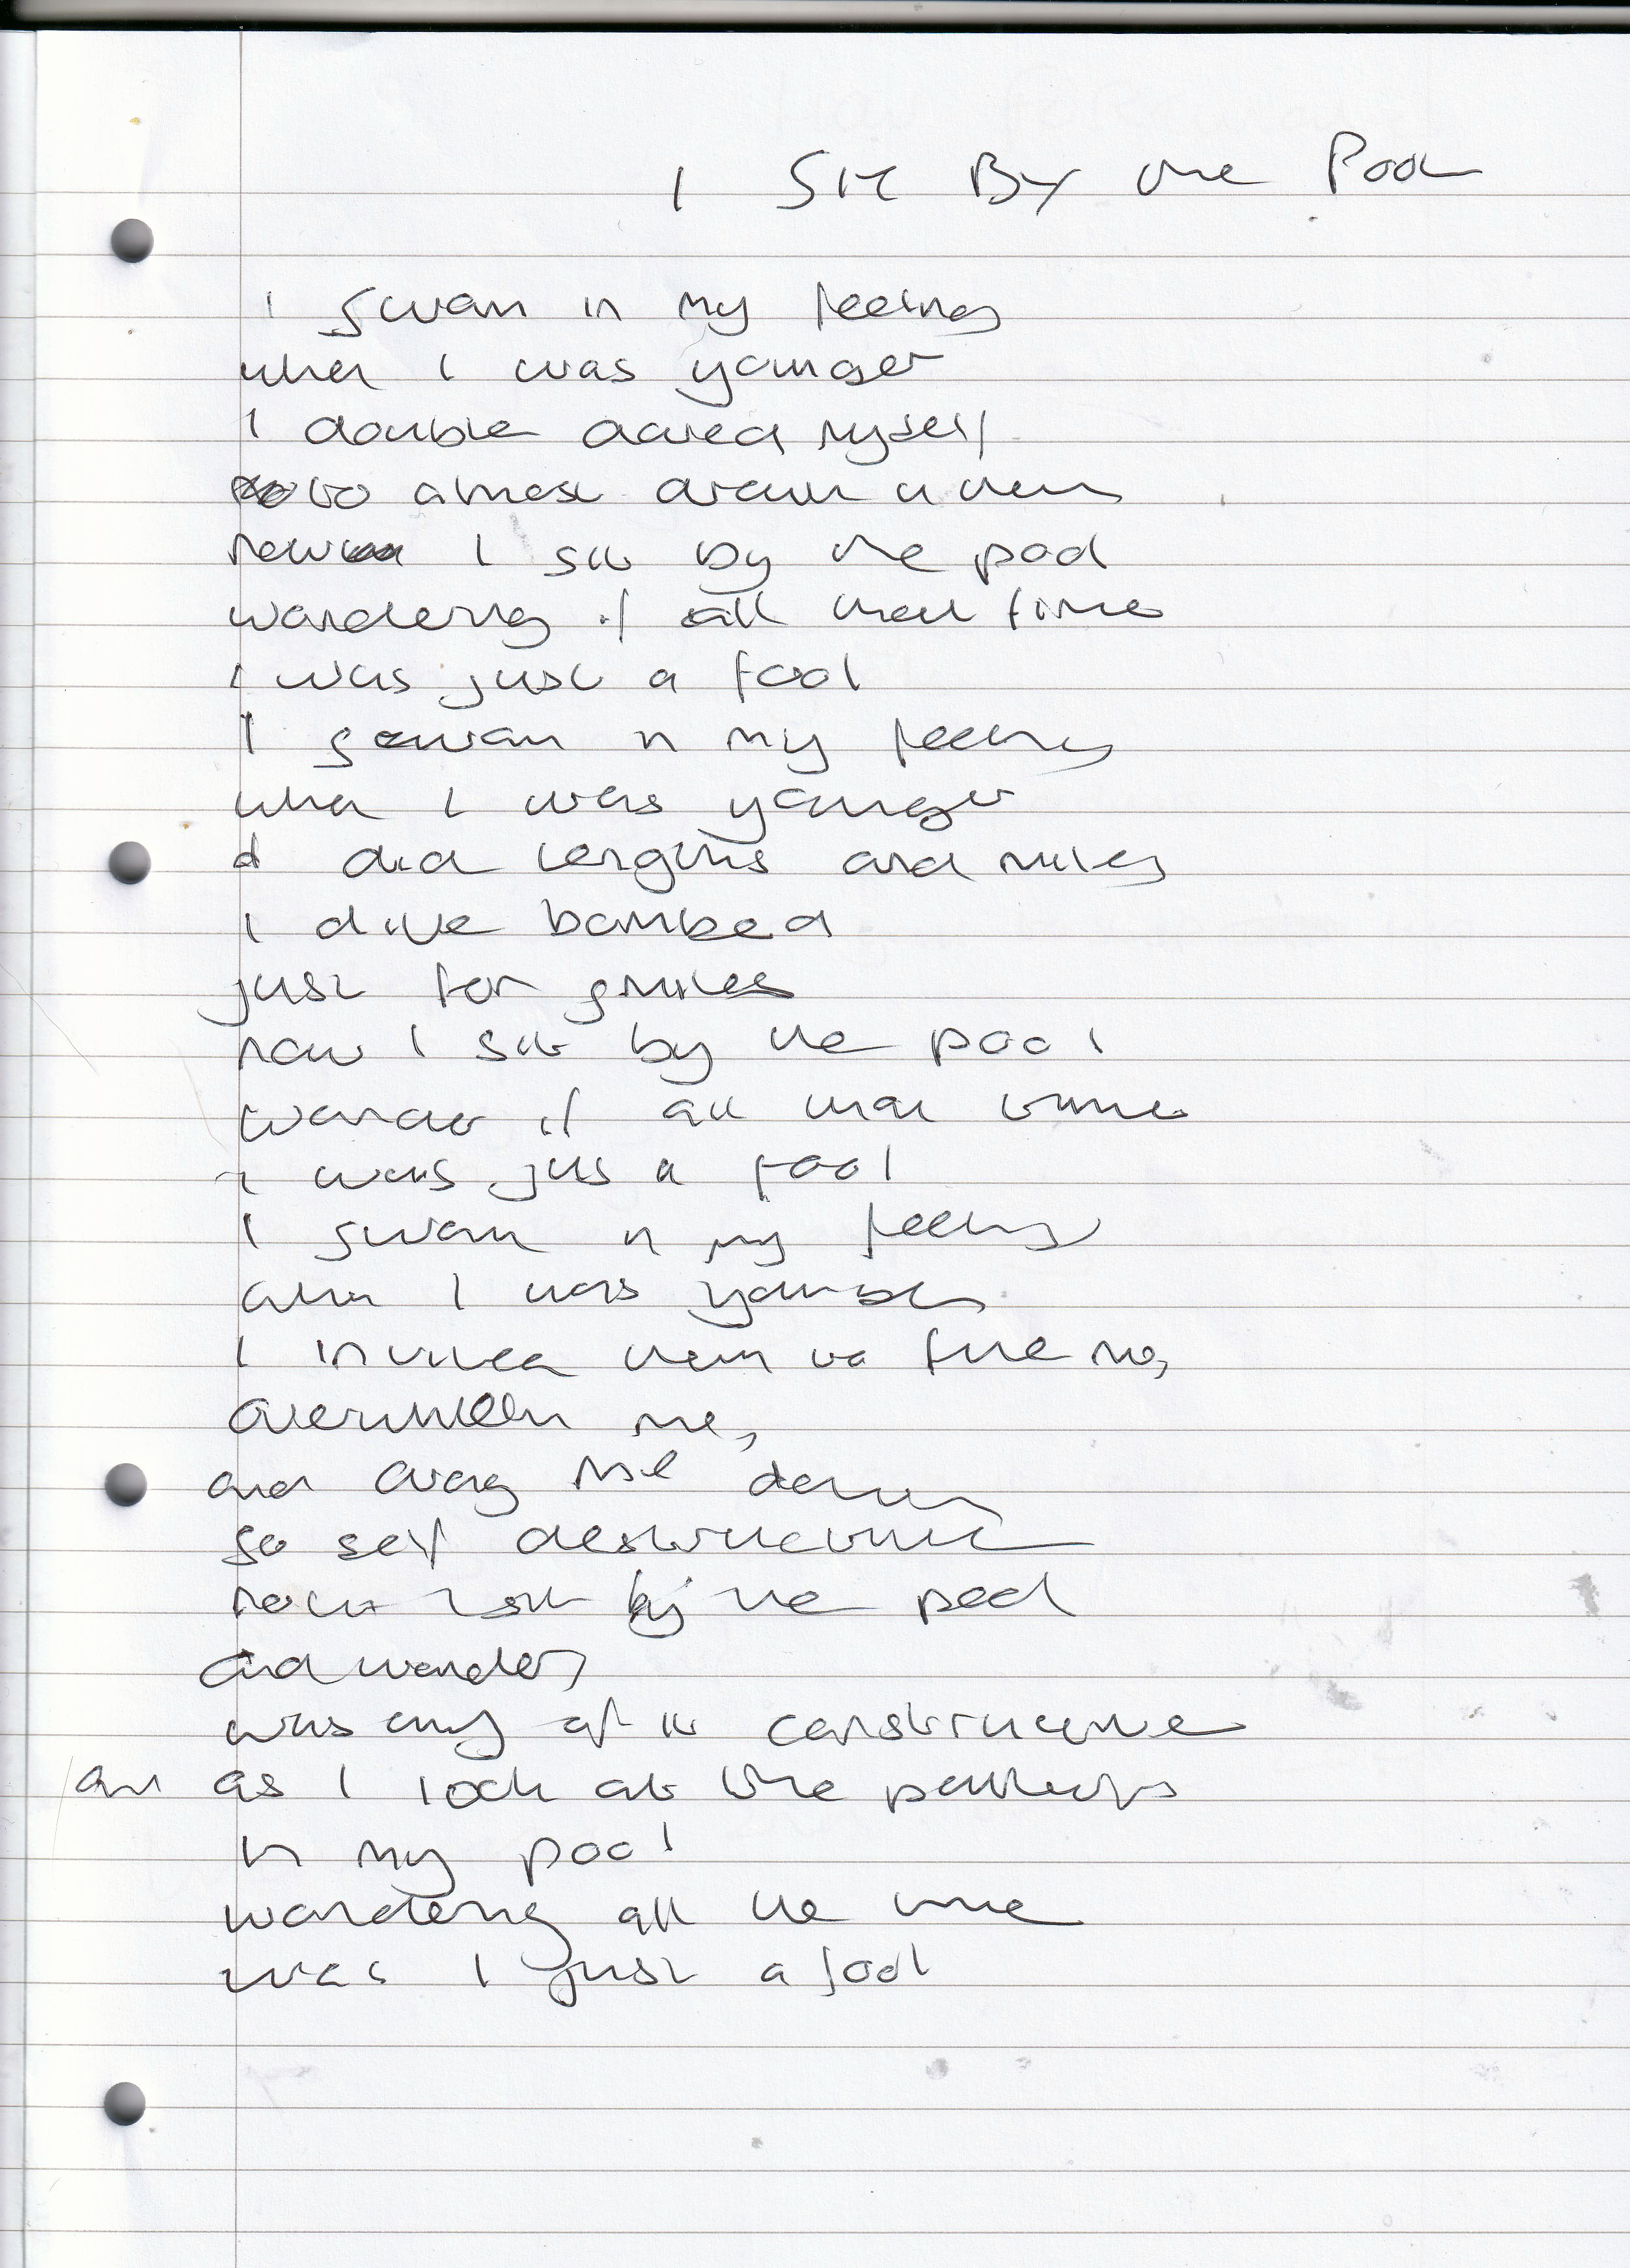 I Sit By the Pool
I swam in my feelings
when I was younger
I double dared myself
to almost drown in them
now I sit by the pool
wondering if all that time
I was just a fool
I swam in my feelings
when I was younger
I did lengths and miles
I dive bombed
just for smiles
now I sit by the pool
wonder if all that time
I was jus a fool
I swam in my feelings
when I was younger
I invited them to
overwhelm me,
and drag me down
so self destructive
now I sit by the pool
and wonder,
was any of it constructive
as I look at the patterns
in my pool
wondering all the time
was I just a fool